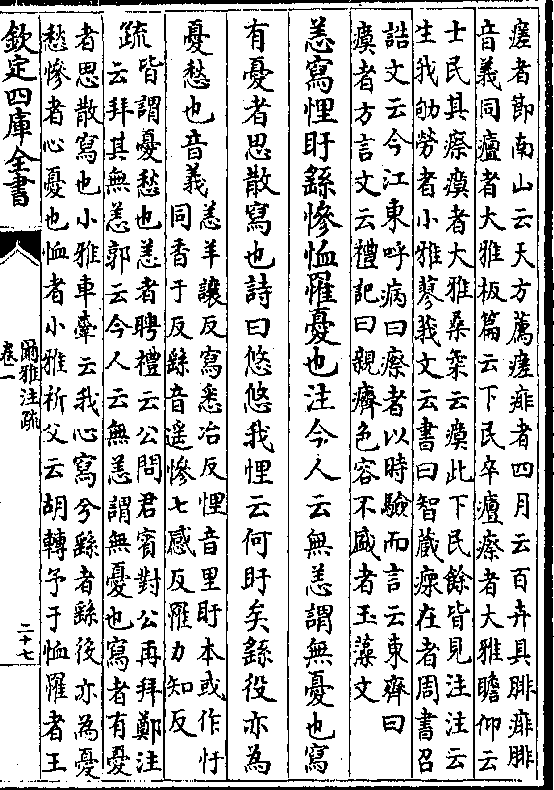 瘥者節南山云天方薦瘥痱者四月云百卉具腓痱腓
音義同癉者大雅板篇云下民卒癉瘵者大雅瞻仰云
士民其瘵瘼者大雅桑柔云瘼此下民餘皆見注注云
生我劬勞者小雅蓼莪文云書曰智藏瘝在者周書召
誥文云今江東呼病曰瘵者以時驗而言云東齊曰
瘼者方言文云禮記曰親癠色容不盛者玉藻文
恙寫悝盱繇慘恤罹憂也注今人云無恙謂無憂也寫
有憂者思散寫也詩曰悠悠我悝云何盱矣繇役亦為
憂愁也音義
恙羊讓反寫悉冶反悝音里盱本或作忬
同香于反繇音遥慘七感反罹力知反
疏
皆謂憂愁也恙者聘禮云公問君賓對公再拜鄭注
云拜其無恙郭云今人云無恙謂無憂也寫者有憂
者思散寫也小雅車舝云我心寫兮繇者繇役亦為憂
愁慘者心憂也恤者小雅祈父云胡轉予于恤罹者王
欽定四庫全書
爾雅注疏
卷一
二十七